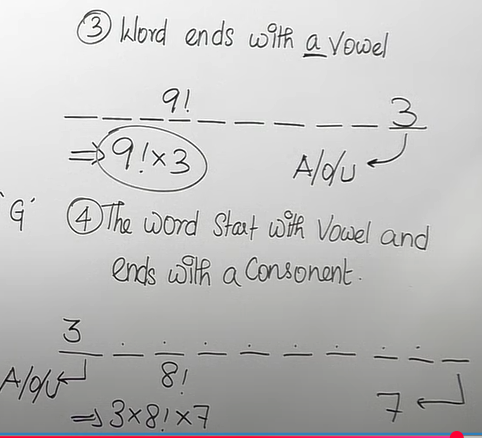 ③ Word ends with a Vowel
9!
3
⇒ 9!×3
A/O/U
'G' ④ The word Start with Vowel and
ends with a Consonent.
3
A/O/U
8!
7
⇒ 3×8!×7